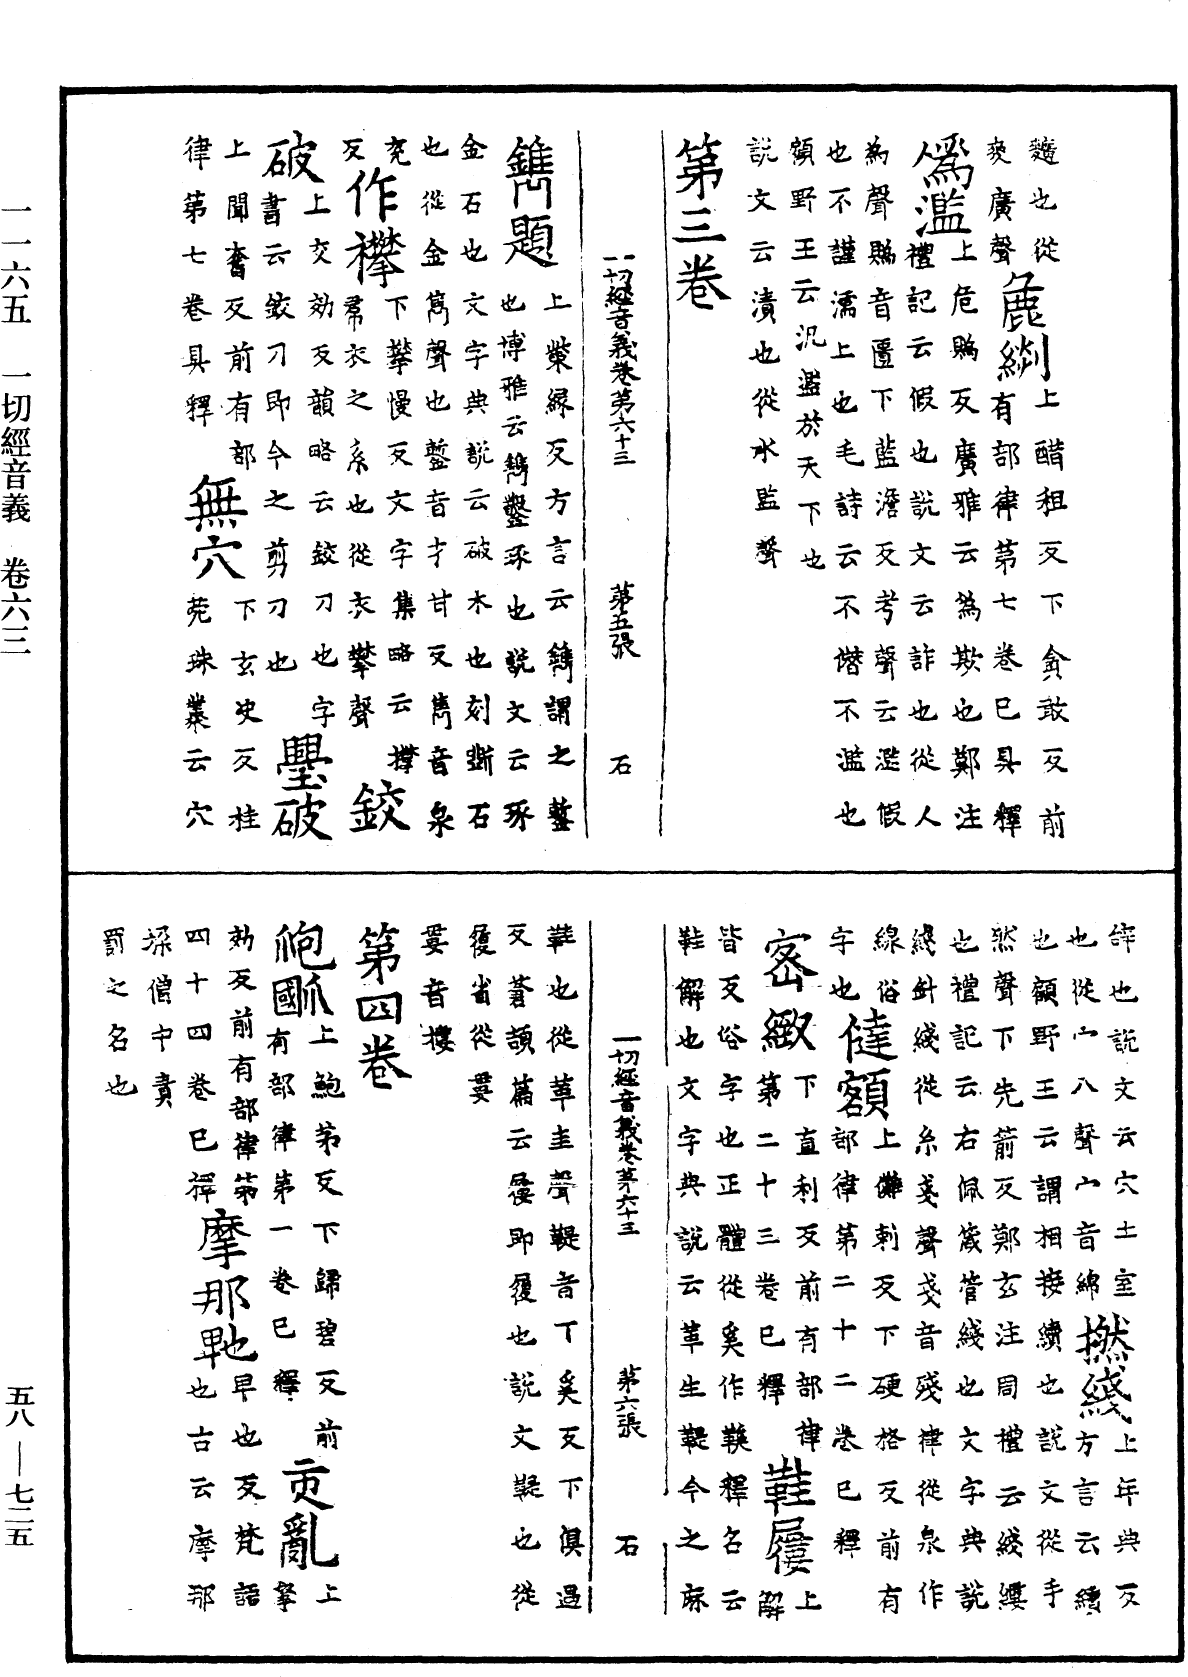 一一六五　一切經音義　卷六三
五八—七二五
麤也從
爽廣聲
麁𦃹上醋租反下貪敢反前
有部律第七卷已具釋
僞濫上危賜反廣雅云僞欺也鄭注
禮記云假也說文云詐也從人
為聲賜音匱下藍澹反考聲云濫假
也不謹濡上也毛詩云不僭不濫也
顧野王云汎濫於天下也
說文云漬也從水監聲
第三卷
一切經音義卷第六十三　第五張　石
鐫題上檠緣反方言云鐫謂之鏨
也博雅云鐫鑿琢也說文云琢
金石也文字典說云破木也刻斲石
也從金雋聲也鏨音才甘反雋音泉
兗反
作襻下攀慢反文字集略云襻
帬衣之系也從衣攀聲
鉸破上交効反韻略云鉸刀也字
書云鉸刀即今之剪刀也
舋破
上聞奮反前有部
律第七卷具釋
無穴下玄决反桂
苑珠叢云穴
辞也說文云穴土室
也從宀八聲宀音綿
撚綫上年典反
方言云續
也顧野王云謂相接續也說文從手
然聲下先箭反鄭玄注周禮云綫縷
也禮記云右佩箴管綫也文字典說
綫針綫從糸戔聲戔音殘律從泉作
線俗字也
㒓額上儺剌反下硬格反前有
部律第二十二卷已釋
密緻下直利反前有部律
第二十三卷已釋
鞋屨上解
皆反俗字也正體從奚作鞵釋名云
鞋解也文字典說云革生鞮今之麻
鞋也從革圭聲鞮音丁奚反下俱遇
反蒼頡篇云屨即履也說文鞮也從
履省從婁
婁音樓
第四卷
爮𧿼上鮑茅反下歸碧反前
有部律第一卷已釋
乱上
効反前有部律第
四十四卷已釋
摩那卑也反梵語
也古云摩那
埵僧中責
罰之名也